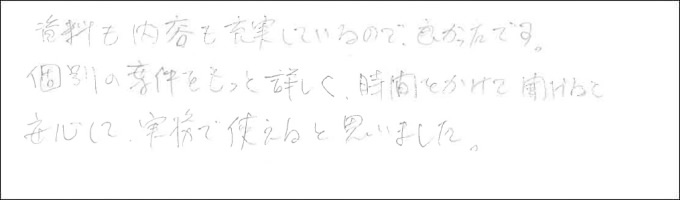 資料も内容も充実しているので、良かったです。
個別の案件をもっと詳しく、時間をかけて聞けると
安心して、実務で使えると思いました。